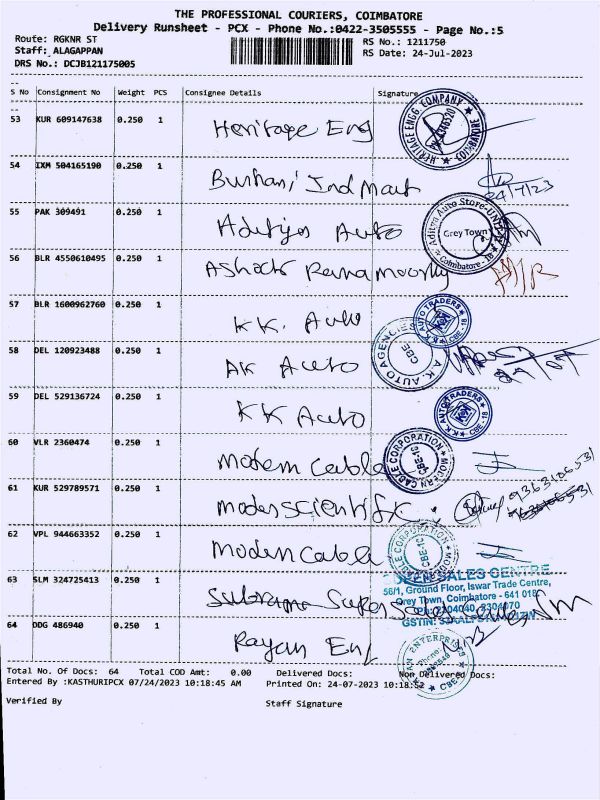 THE PROFESSIONAL COURIERS, COIMBATORE
Delivery Runsheet - PCX - Phone No.:0422-3505555 - Page No.:5
Route: RGKNR ST
RS No.: 1211750
Staff: ALAGAPPAN
RS Date: 24-Jul-2023
DRS No.: DCJB121175005
S No Consignment No Weight PCS Consignee Details Signature
53 KUR 609147638 0.250 1 Heritage Eng
HERITAGE ENGG COMPANY COIMBATORE
54 IXM 504165190 0.250 1 Burhani Ind Mart
24/7/23
55 PAK 309491 0.250 1 Auto
Aditya Auto Store Grey Town Coimbatore - 18
56 BLR 4550610495 0.250 1 Ashock Rama Moorthy
57 BLR 1600962760 0.250 1 KK. Auto
K.K AUTO TRADERS CBE - 18
58 DEL 120923488 0.250 1 AK Auto
A.K. AUTO AGENCIES CBE
59 DEL 529136724 0.250 1 KK Auto
K.K AUTO TRADERS CBE - 18
60 VLR 2360474 0.250 1 Modern Cable
MODERN CABLE CORPORATION CBE-18
61 KUR 529789571 0.250 1
62 VPL 944663352 0.250 1 Modern Cable
CABLE CORPORATION MODERN CBE-18
63 SLM 324725413 0.250 1 Super Sales
SALES CENTRE
56/1, Ground Floor, Iswar Trade Centre,
Grey Town, Coimbatore - 641 018.
64 DDG 486940 0.250 1 Rayan Eng
ENTERPRISES Phone CBE
Total No. Of Docs: 64 Total COD Amt: 0.00 Delivered Docs: Non Delivered Docs:
Entered By :KASTHURIPCX 07/24/2023 10:18:45 AM Printed On: 24-07-2023 10:18:52
Verified By Staff Signature